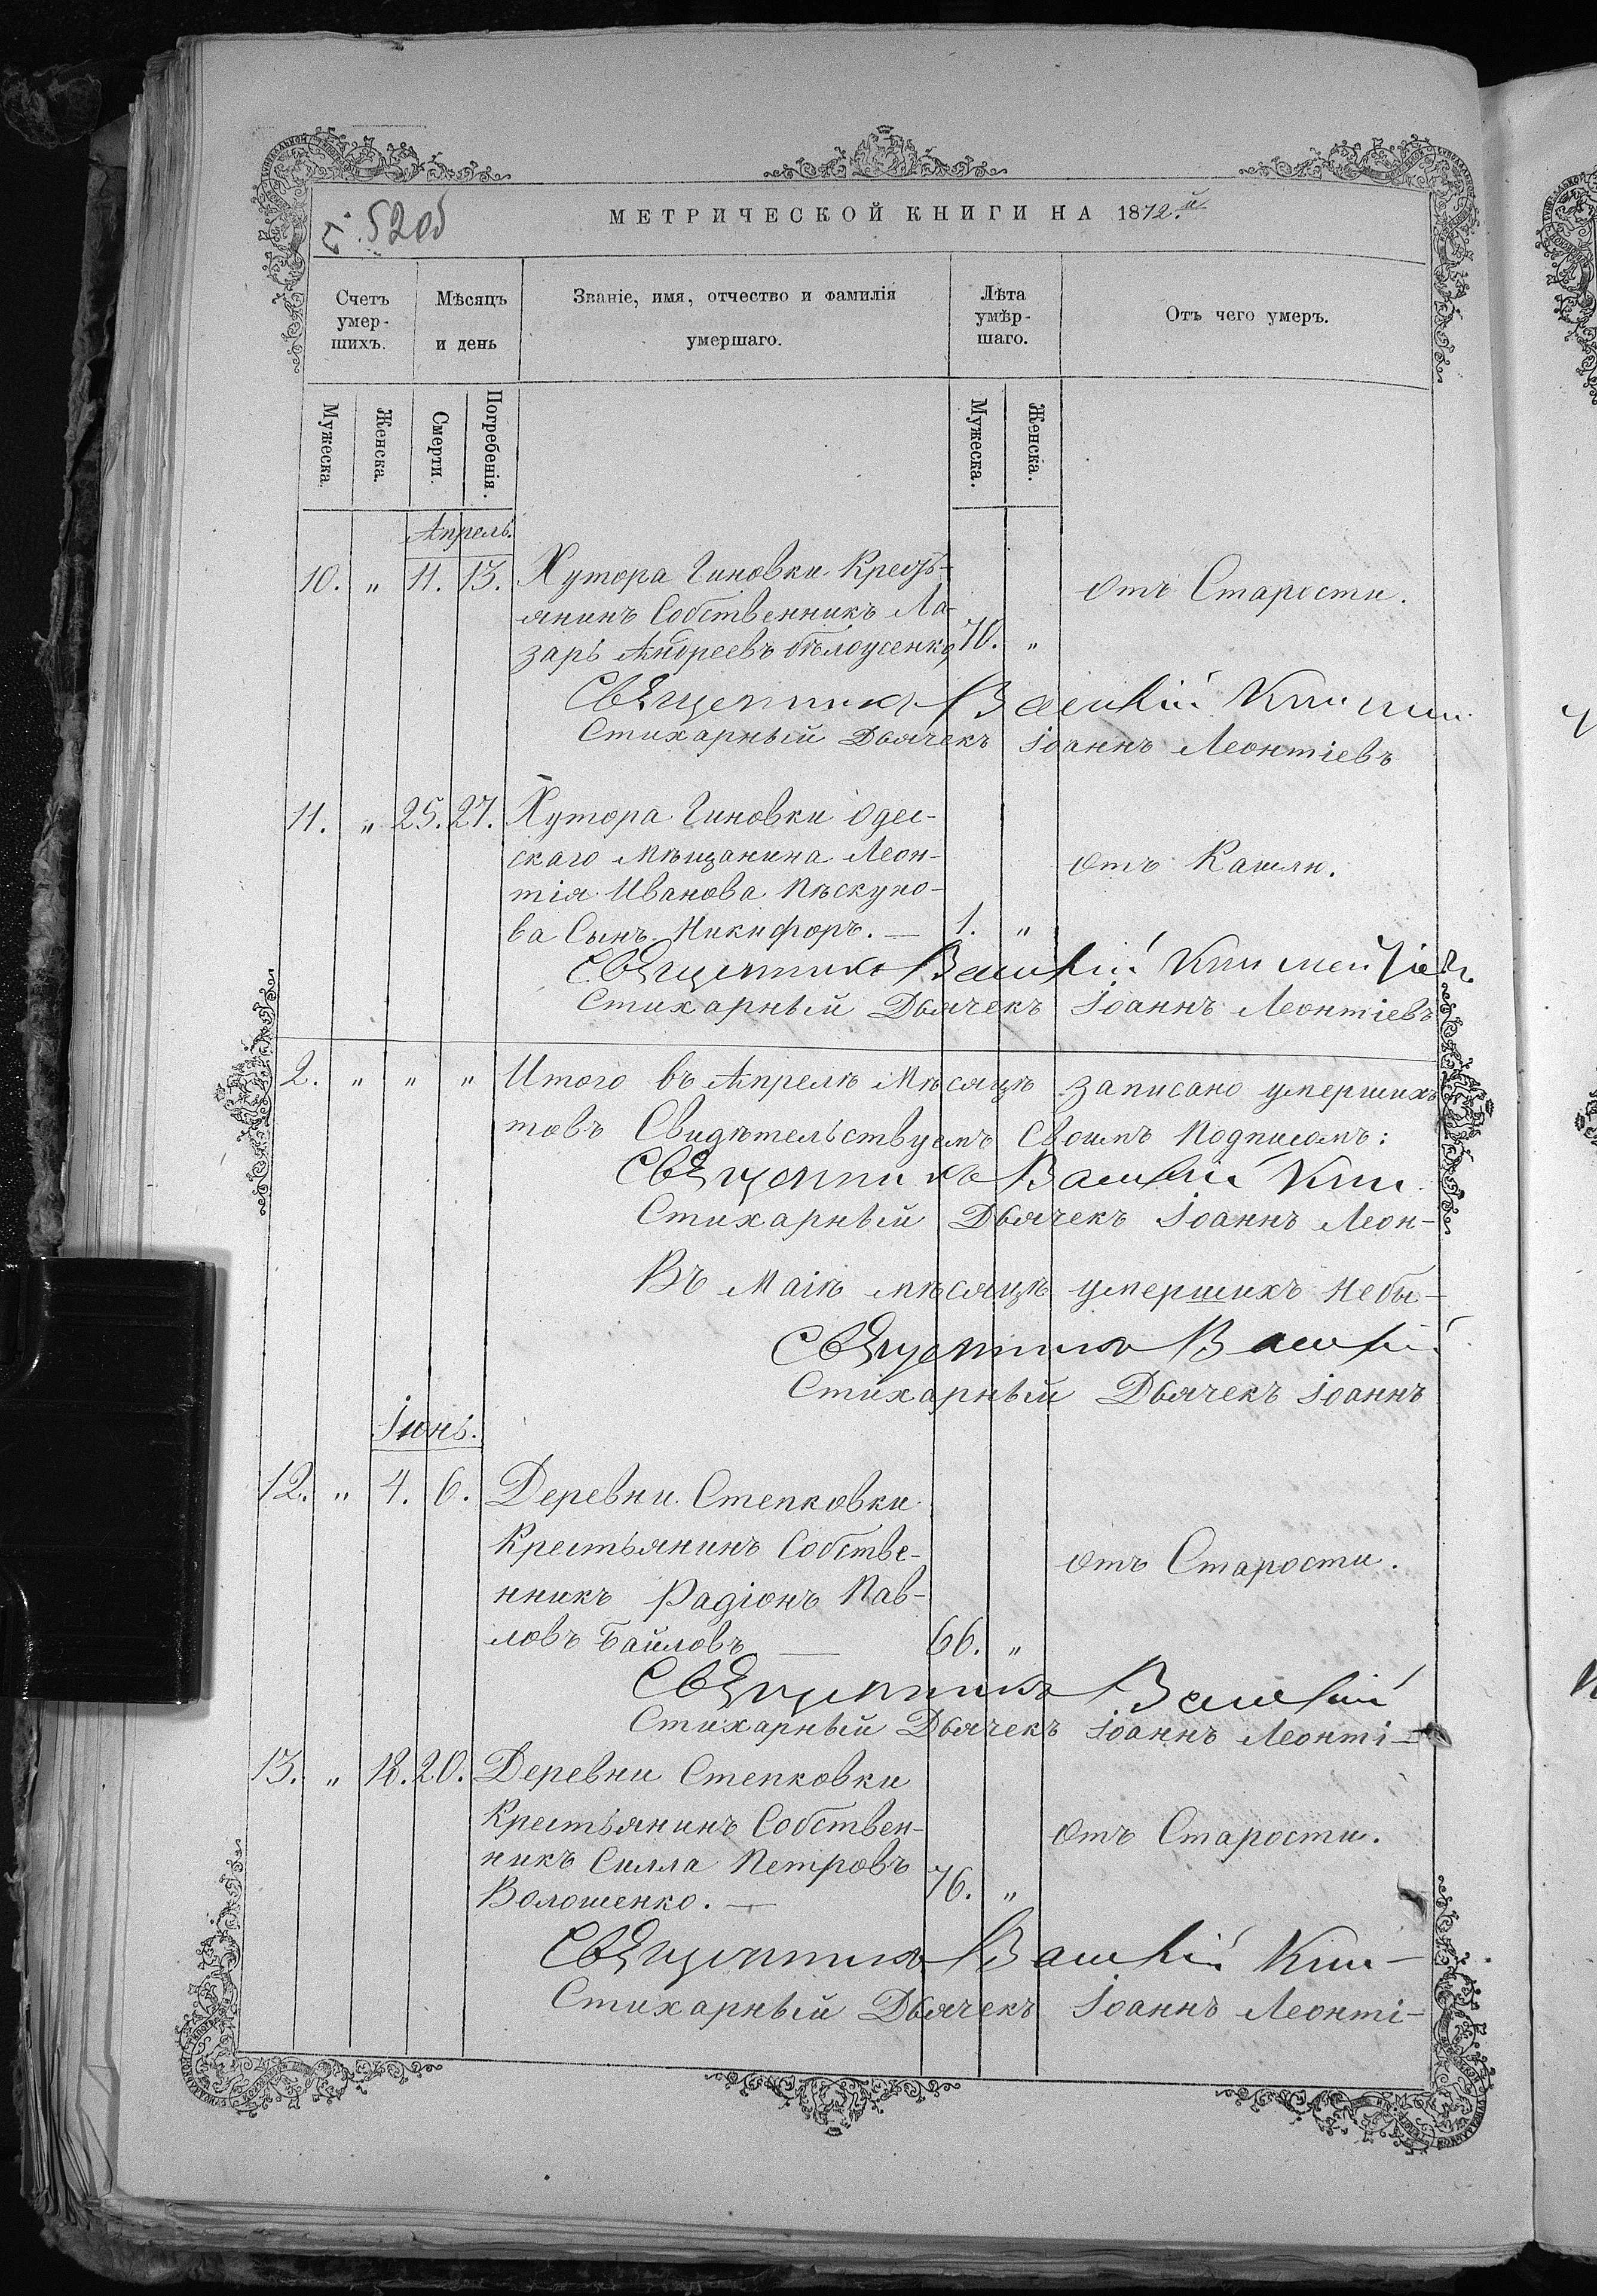 520б
МЕТРИЧЕСКОЙ КНИГИ НА 1872.й
Счетъ умер-шихъ.
Мѣсяцъ и день
Званіе, имя, отчество и фамилія умершаго.
Лѣта умѣр-шаго.
Отъ чего умеръ.
Мужеска.
Женска.
Смерти.
Погребенія.
Мужеска.
Женска.
Апрель.
10. „ 11. 13. Хутора Гиновки Кресть-
янинъ Собственникъ Ла-
зарь Андреевъ Бѣлоусенко 70. „ отъ Старости.
Священникъ Василій
Стихарный Дьячекъ Іоаннъ Леонтіевъ
11. „ 25. 27. Хутора Гиновки Одес-
скаго Мѣщанина Леон-
тія Иванова Пѣскуно-
ва Сынъ Никифоръ. — 1. „ отъ Кашлю.
Священникъ Василій
Стихарный Дьячекъ Іоаннъ Леонтіевъ
2. „ „ „ Итого въ Апрелѣ Мѣсяцѣ записано умершихъ
товъ Свидѣтельствуемъ Своимъ Подписомъ:
Священникъ Василій
Стихарный Дьячекъ Іоаннъ Леон-
Въ Маіѣ мѣсяцѣ умершихъ небы-
Священникъ Василій
Стихарный Дьячекъ Іоаннъ
Іюнь.
12. „ 4. 6. Деревни Степковки
Крестьянинъ Собстве-
нникъ Радіонъ Пав-
ловъ Байловъ — 66. „ отъ Старости.
Священникъ Василій
Стихарный Дьячекъ Іоаннъ Леонті-
13. „ 18. 20. Деревни Степковки
Крестьянинъ Собствен-
никъ Силла Петровъ
Волошенко. — 76. „ отъ Старости.
Священникъ Василій
Стихарный Дьячекъ Іоаннъ Леонті-